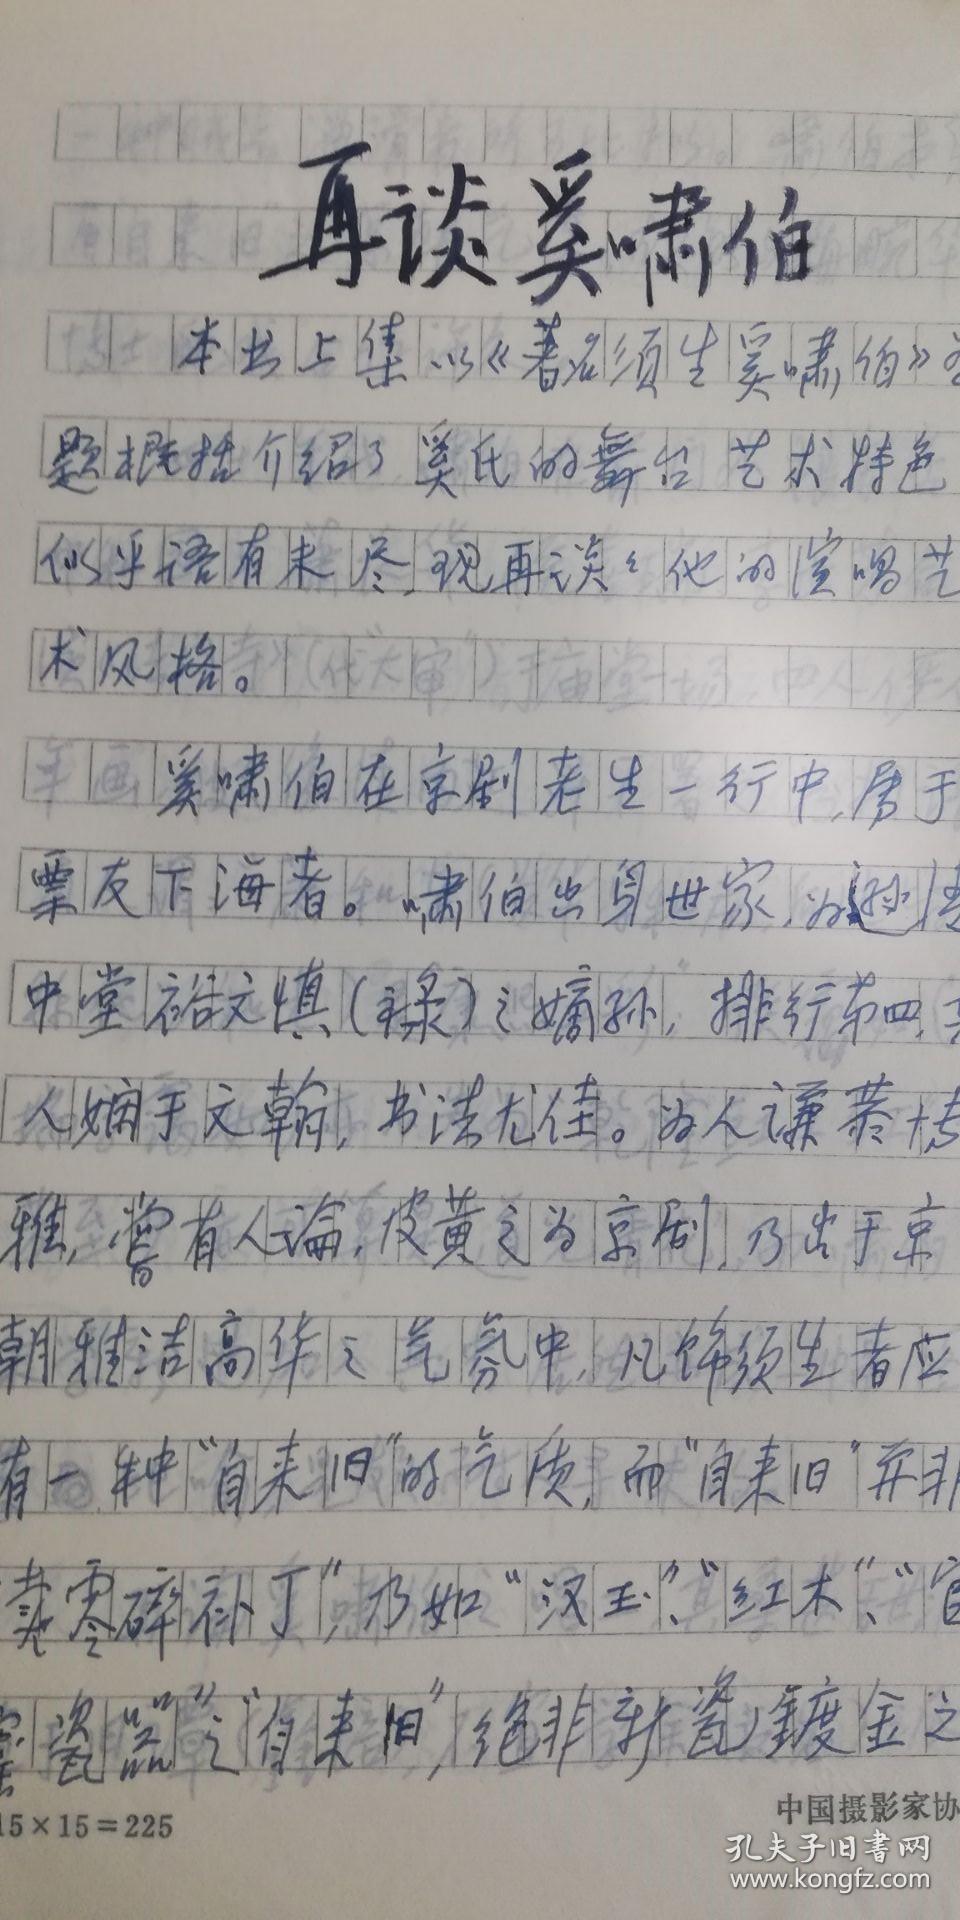 再谈奚啸伯
本书上集以《著名须生奚啸伯》为
题概括介绍了奚氏的舞台艺术特色
似乎语有未尽,现再谈々他的演唱艺
术风格。
奚啸伯在京剧老生一行中,属于
票友下海者。啸伯出身世家,为逊清
中堂裕文慎(禄)之嫡孙,排行第四,其
人娴于文翰,书法尤佳。为人谦恭博
雅,曾有人论,皮黄之为京剧,乃出于京
朝雅洁高华之气氛中,凡饰须生者应
有一种“自来旧”的气质,而“自来旧”并非
零碎补丁”,乃如“汉玉”、“红木”、“官
窑瓷器”之“自来旧”,绝非新瓷镀金之
15×15=225
中国摄影家协
孔夫子旧书网
www.kongfz.com